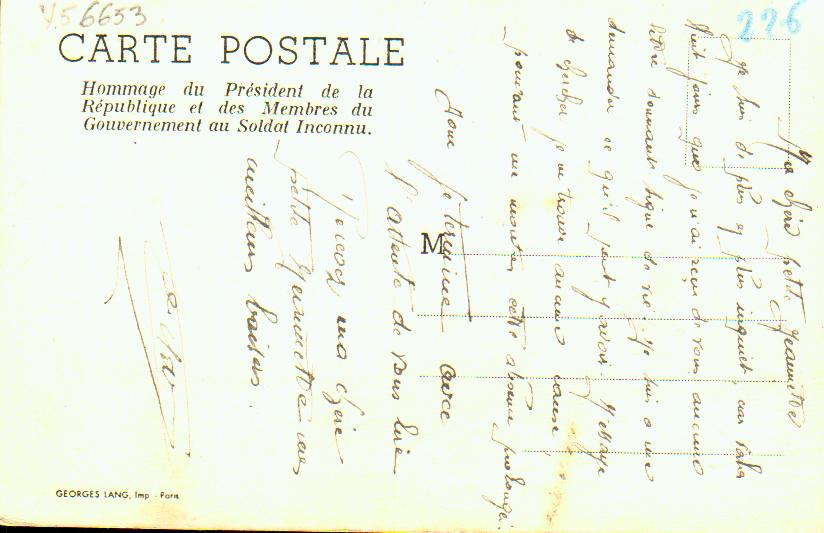 456653
226
CARTE POSTALE
Hommage du Président de la
République et des Membres du
Gouvernement au Soldat Inconnu.
M
Ma chère petite Jeannette
Je suis de plus en plus inquiet, car voila
huit jours que je n'ai reçu de vous aucune
lettre donnant signe de vie. Je suis à me
demander ce qu'il peut y avoir. J'essaye
de chercher je ne trouve aucune cause
pouvant me montrer cette absence prolongée.
Aom je termine avec
l'attente de vous lire
Recevez ma chère
petite Jeannette mes
meilleurs baisers.
GEORGES LANG, Imp - Paris